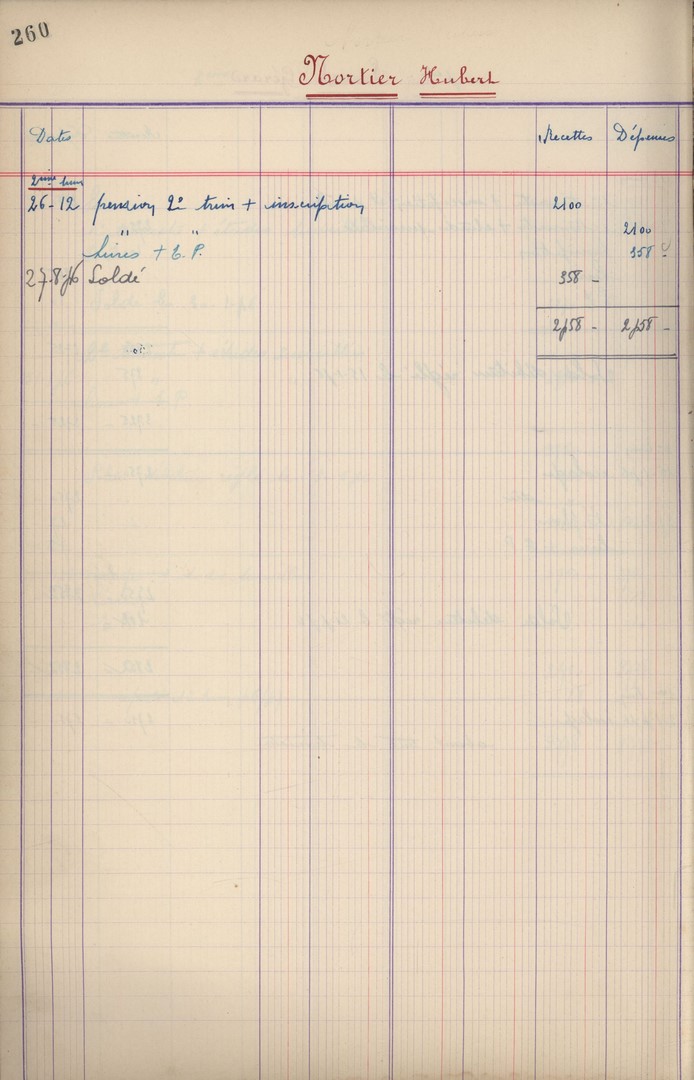 260
Mortier Hubert
Dates Recettes Dépenses
2ème trim
26-12 pension 2º trim + inscription 2100
" " 2100
Livres + E.P. 358
27-8-46 Soldé 358 -
2458 - 2458 -